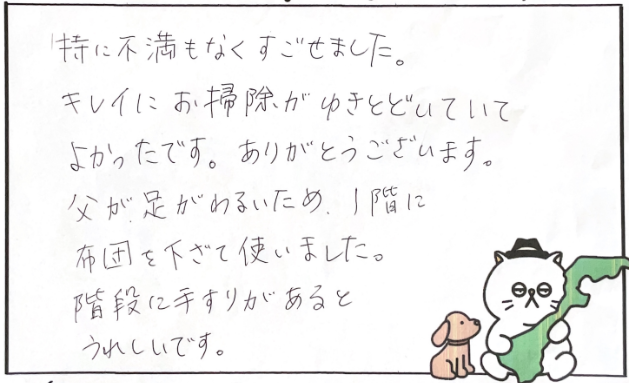 特に不満もなくすごせました。
キレイにお掃除がゆきとどいていて
よかったです。ありがとうございます。
父が足がわるいため、1階に
布団を下ざて使いました。
階段に手すりがあると
うれしいです。